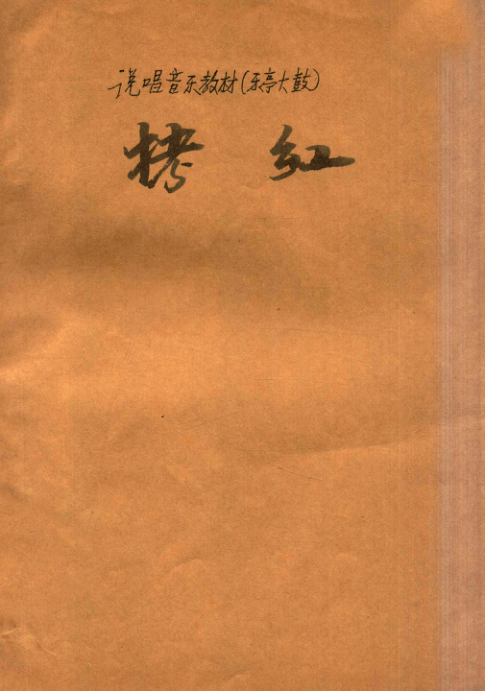 说唱音乐教材(乐亭大鼓)
拷红